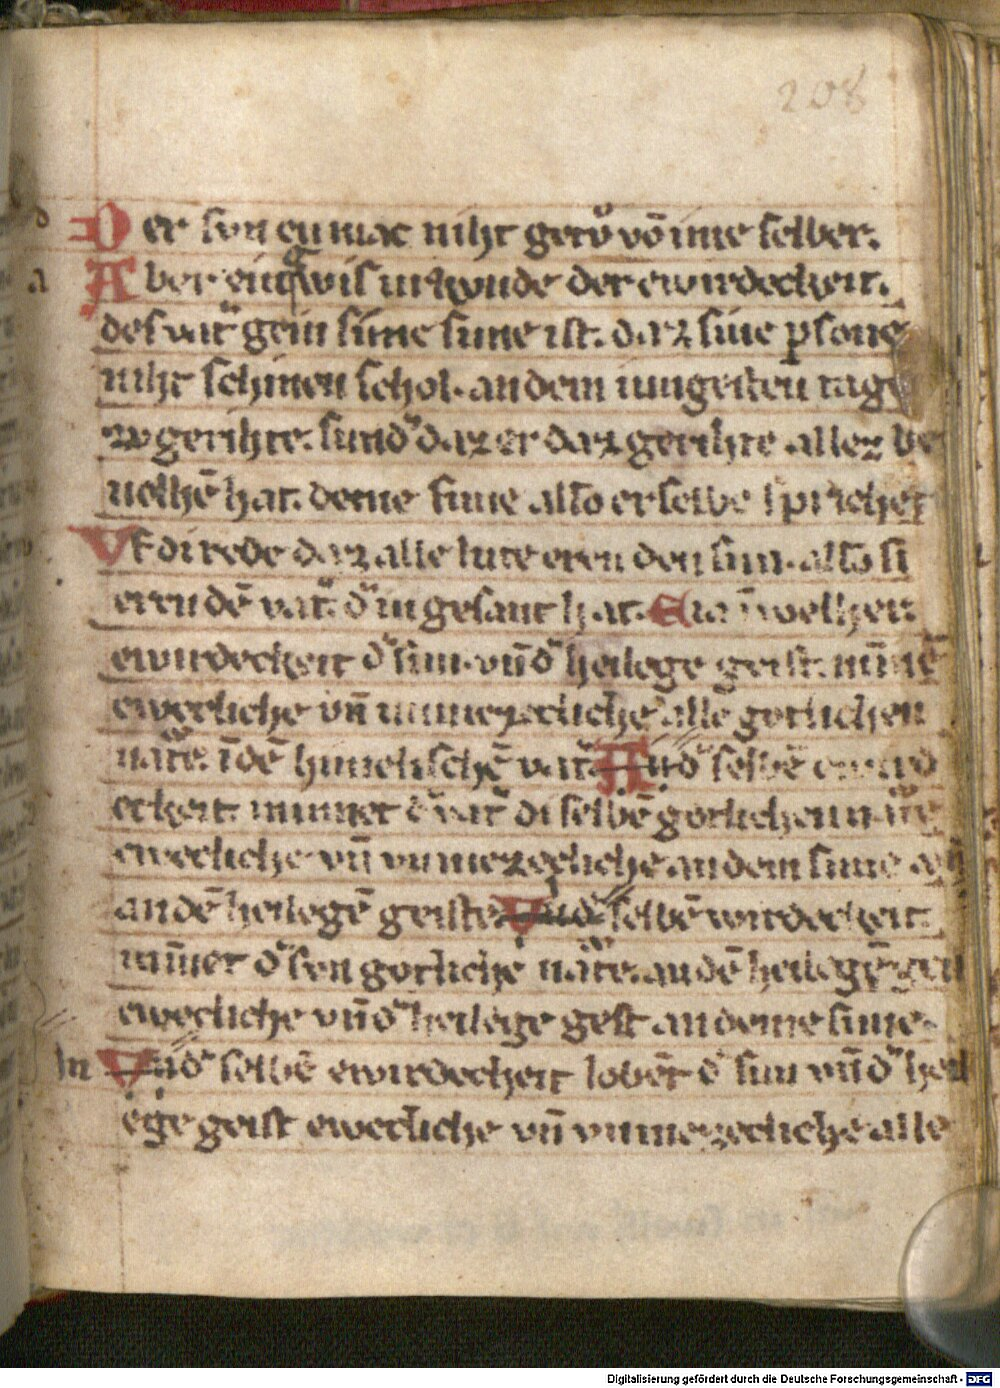 208
Der sun en mac niht getů võ ime selber.
Aber ein gwis urkunde der ewirdecheit.
des vat͛ gein sime sune ist. daz sine p̱sone
niht schinen schol. an dem iungesten tage
zv gerihte. sund͛ daz er daz gerihte allez be
uolhē hat. deme sune also er selbe sprichet
Vf di rede daz alle lute eren den sun. also si
eren dē vat͛. d͛ in gesant hat. ī welher
ewirdecheit d͛ sun. vn̄ d͛ heilege geist.
ewecliche vn̄ unmezecliche alle gotlichen
nat͛e. ī dē himelischē vat͛. selbē ewird
echeit. minnet d͛ vat͛ di selbē gotlichen nat͛e
ewecliche vn̄ vnmezecliche an dem sune
an dē heilegē geiste selbē wirdecheit.
mīnet d͛ sun gotliche nat͛e. an dē heilegē geis
ewecliche vn̄ d͛ heilege geist an deme sune.
In d͛ selbē ewirdecheit lobet d͛ sun vn̄ d͛ heil
ege geist ewecliche vn̄ vnmezecliche alle
Digitalisierung gefördert durch die Deutsche Forschungsgemeinschaft - DFG